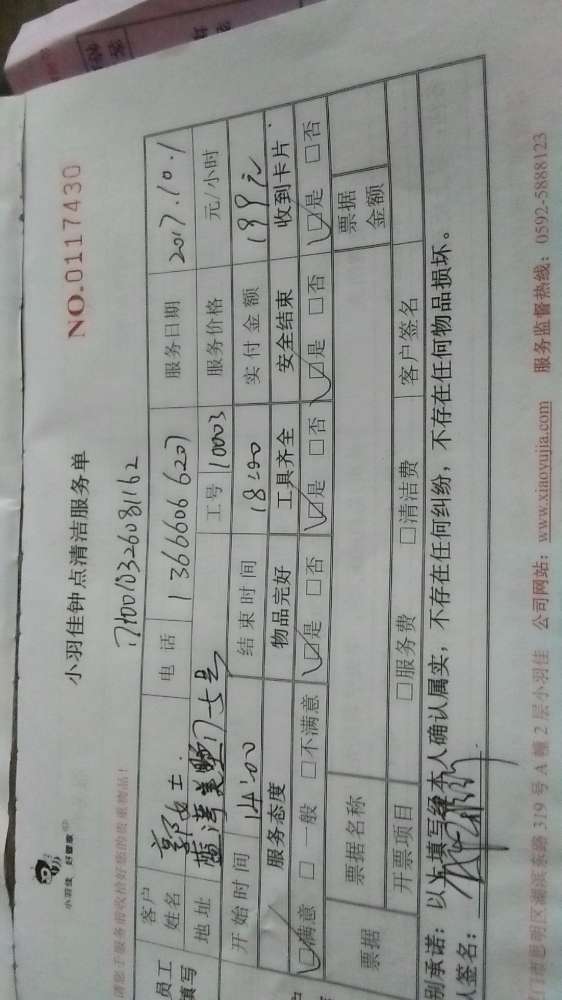 小羽佳 好管家
小羽佳钟点清洁服务单
NO.0117430
请您于服务前收拾好您的贵重物品！
员工
填写
客户
姓名
郭女士
电 话
13666066207
服务日期
2017.10.1
地址
工号
10003
服务价格
元/小时
开始时间
14:00
结束时间
18:00
实付金额
199元
服务态度
物品完好
工具齐全
安全结束
收到卡片
满意 □ 一般 □不满意
是 □否
是 □否
是 □否
是 □否
票据
票据名称
票据
金额
开票项目
□服务费
□清洁费
客户签名
别承诺：以上填写经本人确认属实，不存在任何纠纷，不存在任何物品损坏。
人签名：
门市思明区湖滨东路319号A幢2层小羽佳 公司网站：www.xiaoyujia.com 服务监督热线：0592-5888123